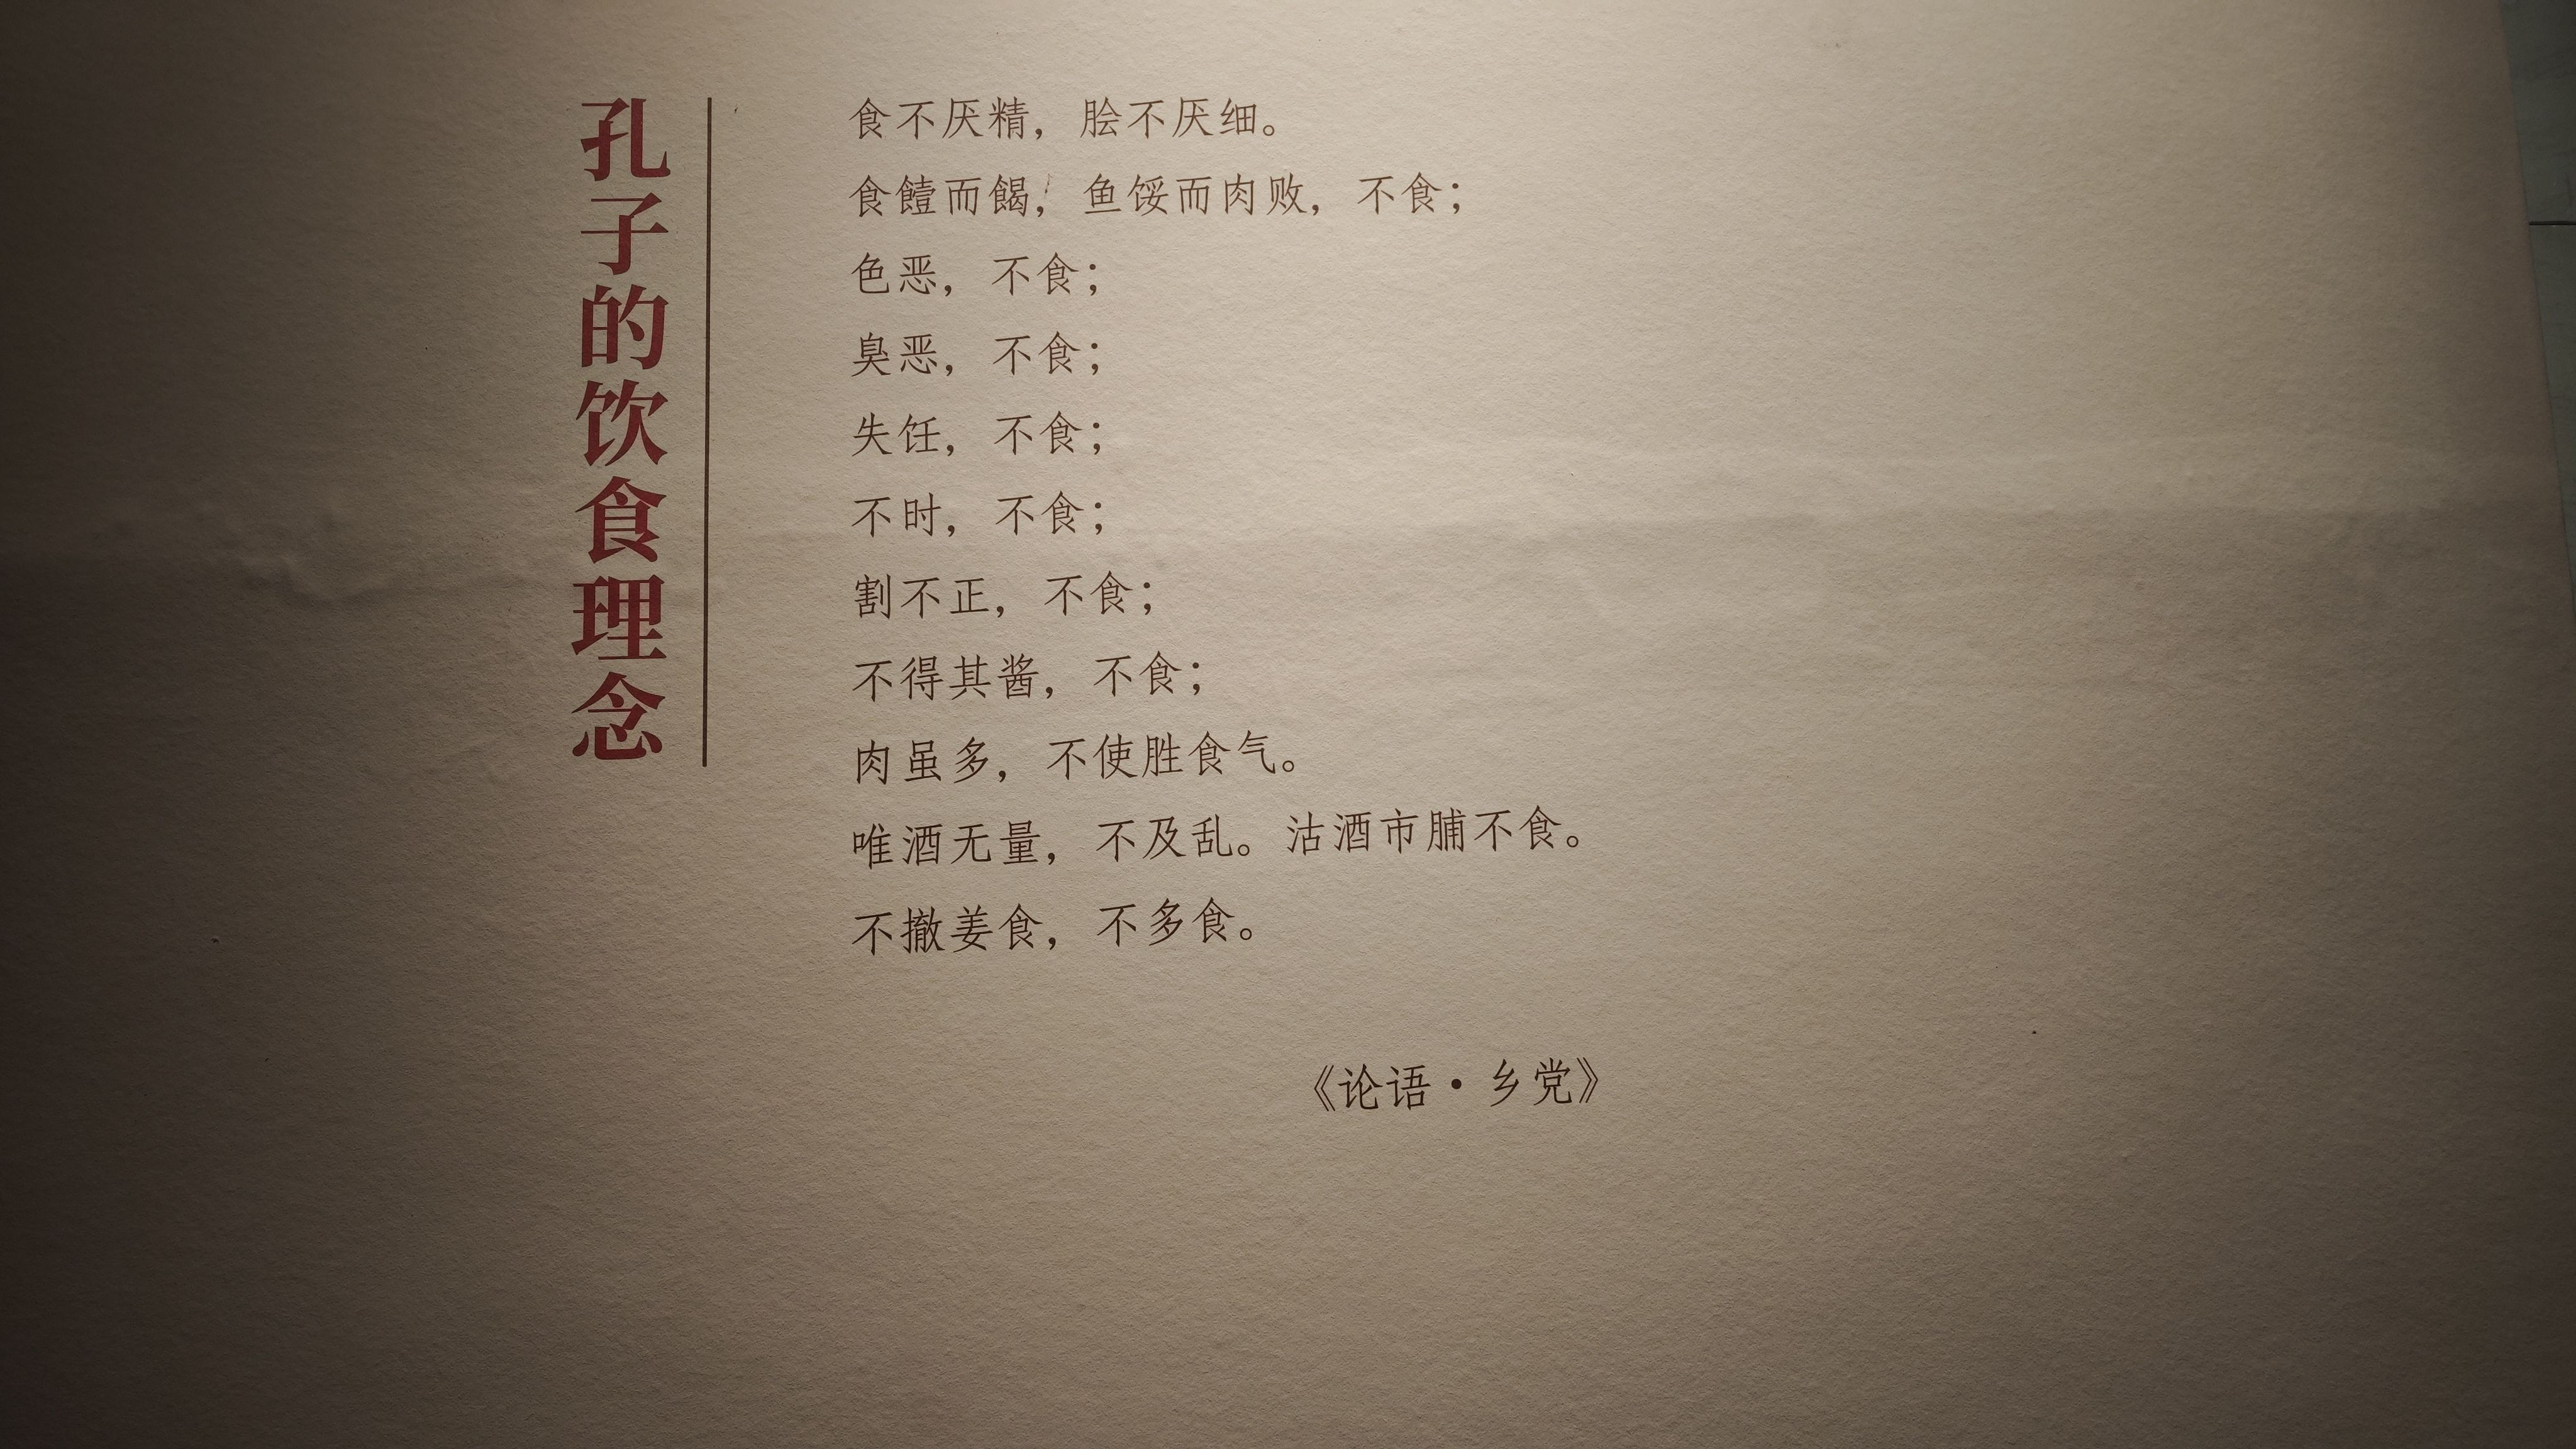 孔子的饮食理念
食不厌精，脍不厌细。
食饐而餲，鱼馁而肉败，不食；
色恶，不食；
臭恶，不食；
失饪，不食；
不时，不食；
割不正，不食；
不得其酱，不食；
肉虽多，不使胜食气。
唯酒无量，不及乱。沽酒市脯不食。
不撤姜食，不多食。
《论语·乡党》